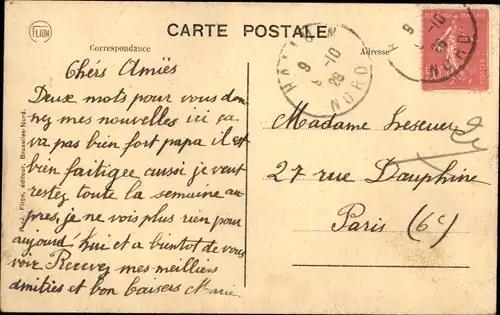 FLION
CARTE POSTALE
Correspondance
Adresse
HALLUIN
9
9-10
28
NORD
9
-10
28
NORD
Chérs Amiës
Deux mots pour vous don
nez mes nouvelles ici ça
va pas bien fort papa il est
bien faitigee aussi je veut
restez toute la semaine au
pres, je ne vois plus rien pour
aujourd'hui et a bientot de vous
voir Recevez mes meilliers
amities et bon baisers Marie
Madame Leseuer
27 rue Dauphine
Paris (6e)
éditeur, Bruxelles-Nord.